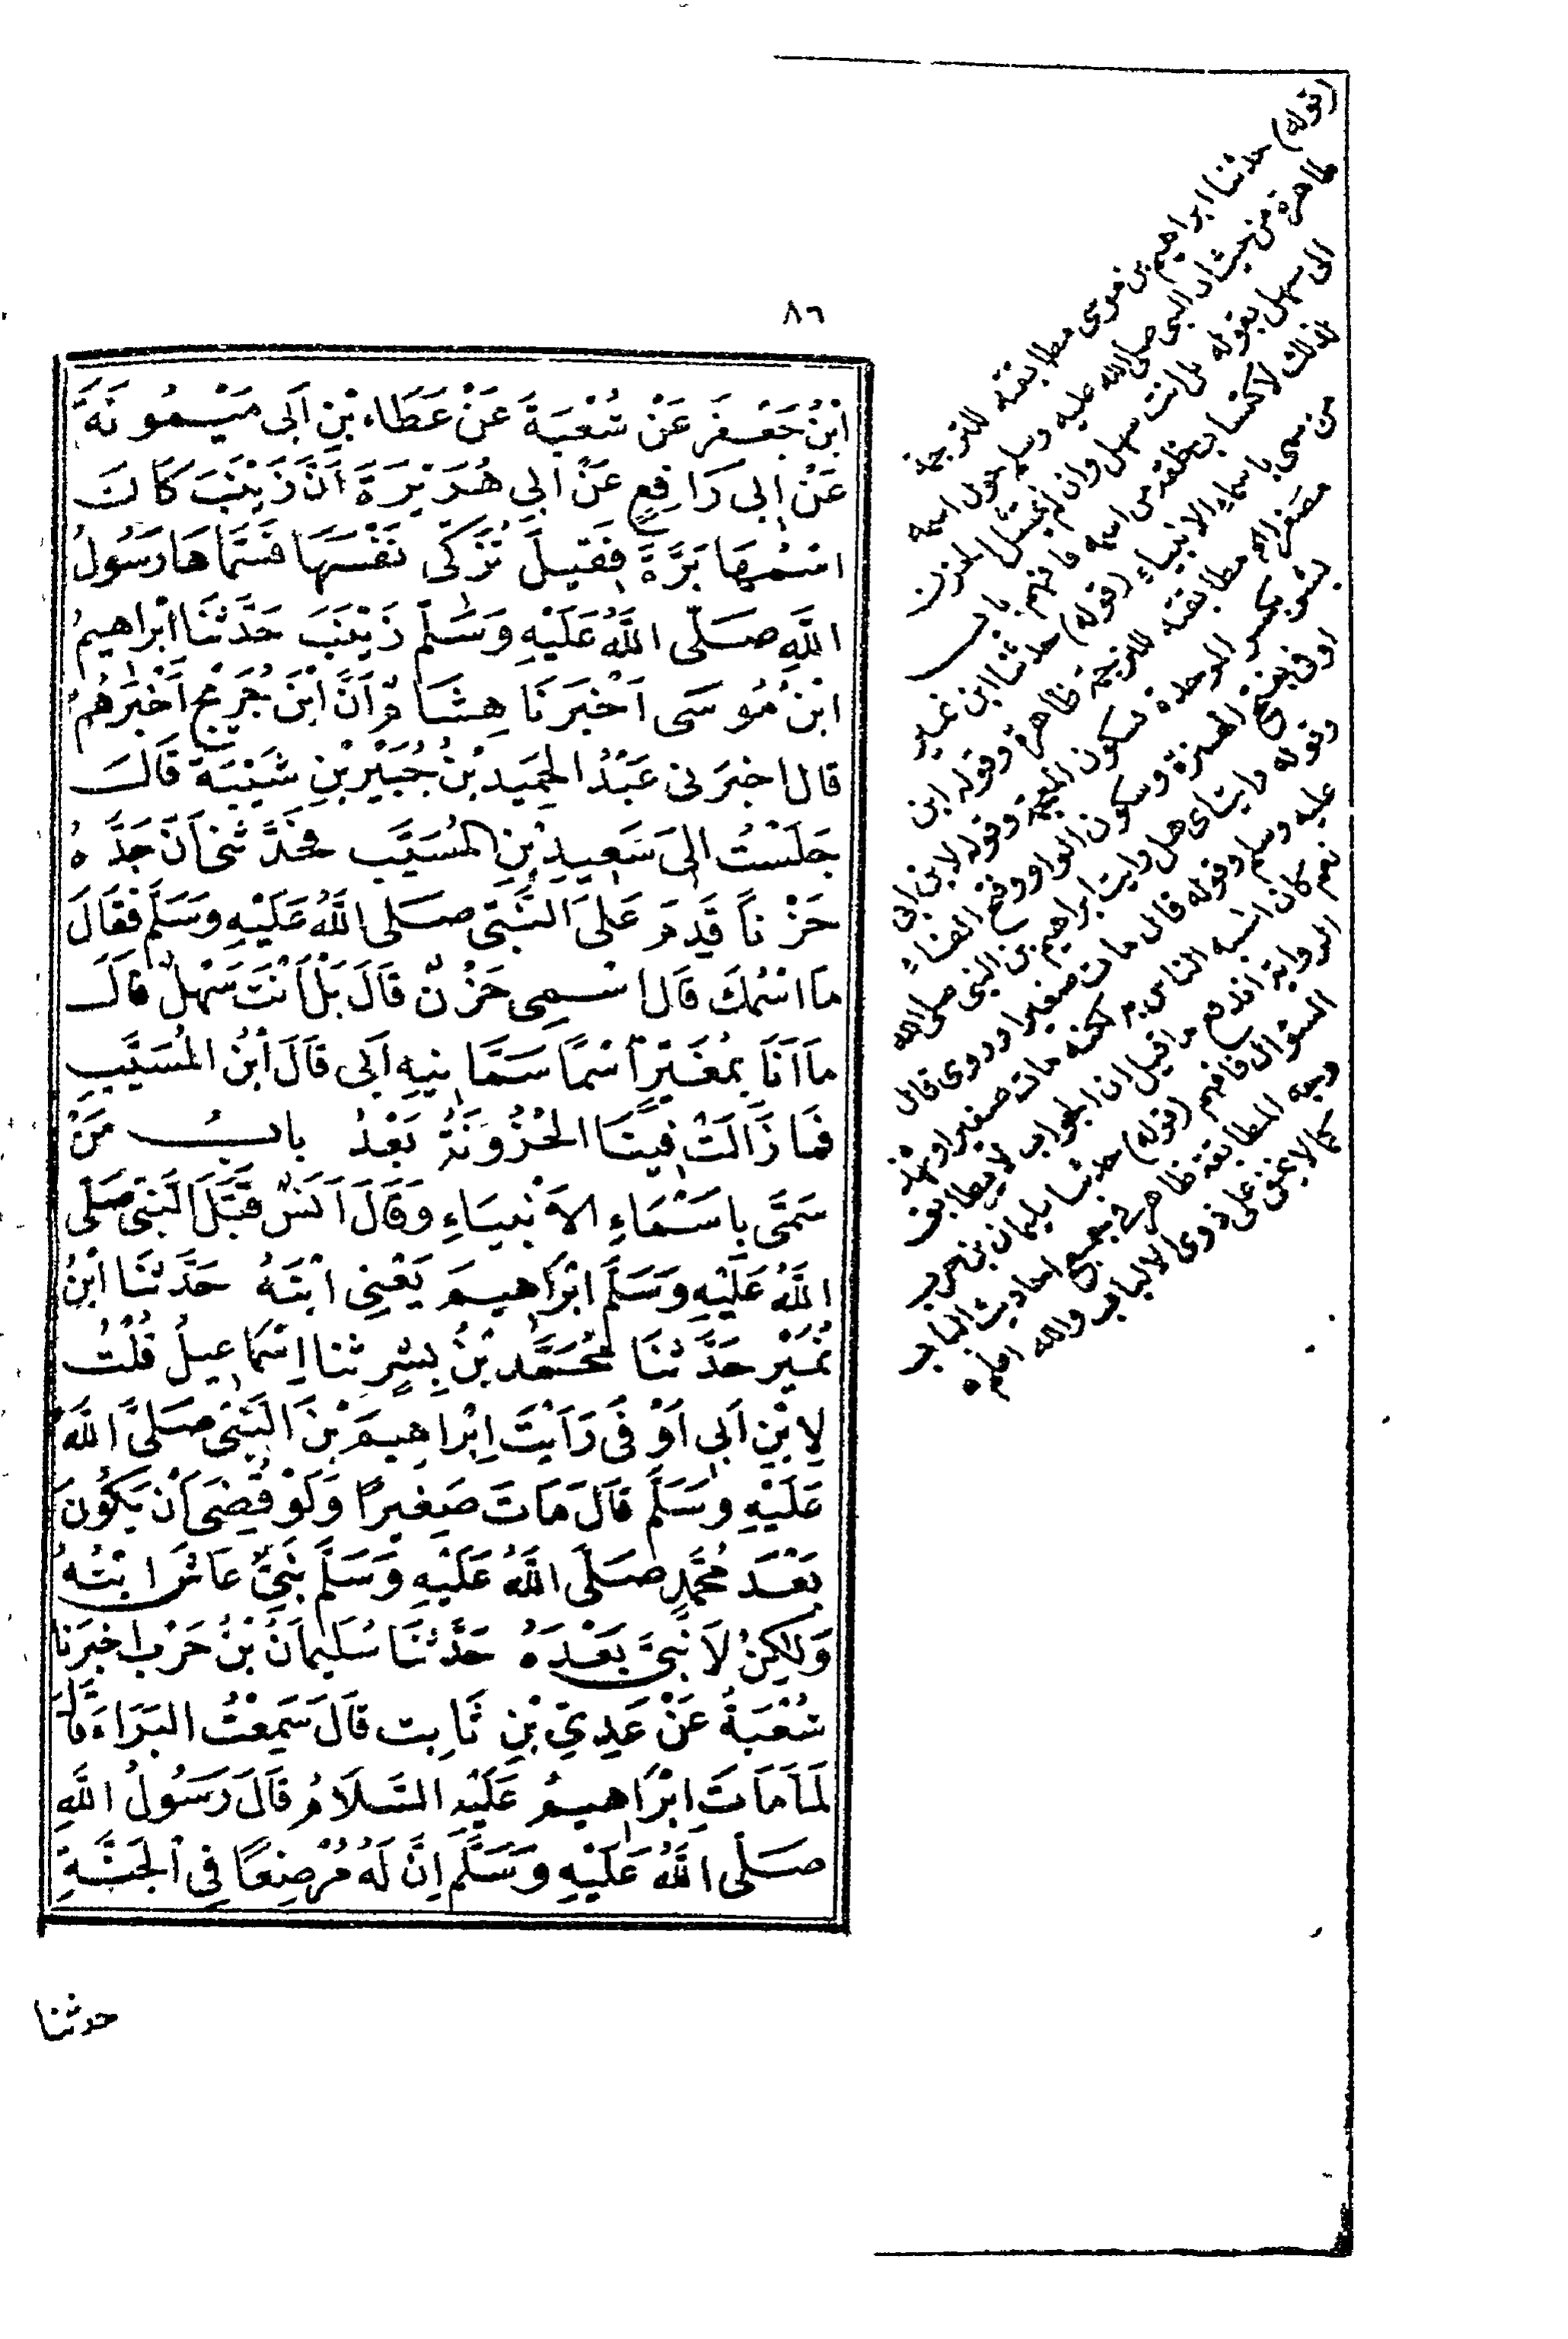 ٨٦
ابْنُ جَعْفَرٍ عَنْ شُعْبَةَ عَنْ عَطَاءِ بْنِ اَبِى مَيْمُونَةَ
عَنْ اَبِى رَافِعٍ عَنْ اَبِى هُرَيْرَةَ اَنَّ زَيْنَبَ كَانَتْ
اسْمُهَا بَرَّةَ فَقِيلَ تُزَكِّى نَفْسَهَا فَسَمَّاهَا رَسُولُ
اللَّهِ صَلَّى اللَّهُ عَلَيْهِ وَسَلَّمَ زَيْنَبَ حَدَّثَنَا ابْرَاهِيمُ
ابْنُ مُوسَى اَخْبَرَنَا هِشَامٌ اَنَّ ابْنَ جُرَيْجٍ اَخْبَرَهُمْ
قال اخبَرنى عَبْدُ الحَمِيدِ بْنُ جُبَيْرِ بْنِ شَيْبَةَ قَالَ
جَلَسْتُ اِلَى سَعِيدِ بْنِ المُسَيَّبِ فَحَدَّثَنِى اَنَّ جَدَّهُ
حَزْنًا قَدِمَ عَلَى النَّبِىِّ صَلَّى اللَّهُ عَلَيْهِ وَسَلَّمَ فَقَالَ
مَا اسْمُكَ قَالَ اسْمِى حَزْنٌ قَالَ بَلْ اَنْتَ سَهْلٌ قَالَ
مَا اَنَا بِمُغَيِّرٍ اسْمًا سَمَّانِيهِ اَبِى قَالَ ابْنُ المُسَيَّبِ
فَمَا زَالَتْ فِينَا الحُزُونَةُ بَعْدُ بابُ مَنْ
سَمَّى بِاَسْمَاءِ الاَنْبِيَاءِ وَقَالَ اَنَسٌ قَبَّلَ النَّبِىُّ صَلَّى
اللَّهُ عَلَيْهِ وَسَلَّمَ ابْرَاهِيمَ يَعْنِى ابْنَهُ حَدَّثَنَا ابْنُ
نُمَيْرٍ حَدَّثَنَا مُحَمَّدُ بْنُ بِشْرٍ ثنا اِسْمَاعِيلُ قُلْتُ
لِابْنِ اَبِى اَوْفَى رَاَيْتَ اِبْرَاهِيمَ بْنَ النَّبِىِّ صَلَّى اللَّهُ
عَلَيْهِ وَسَلَّمَ قَالَ مَاتَ صَغِيرًا وَلَوْ قُضِىَ اَنْ يَكُونَ
بَعْدَ مُحَمَّدٍ صَلَّى اللَّهُ عَلَيْهِ وَسَلَّمَ نَبِىٌّ عَاشَ ابْنُهُ
وَلَكِنْ لَا نَبِىَّ بَعْدَهُ حَدَّثَنَا سُلَيْمَانُ بْنُ حَرْبٍ اخبَرَنَا
شُعْبَةُ عَنْ عَدِىِّ بْنِ ثَابِتٍ قَالَ سَمِعْتُ البَرَاءَ قَالَ
لَمَّا مَاتَ اِبْرَاهِيمُ عَلَيْهِ السَّلَامُ قَالَ رَسُولُ اللَّهِ
صَلَّى اللَّهُ عَلَيْهِ وَسَلَّمَ اِنَّ لَهُ مُرْضِعًا فِى الجَنَّةِ
حدثنا
(قوله) حدثنا ابراهيم بن موسى مطابقته للترجمة
ظاهرة من حيث ان النبى صلى الله عليه وسلم حول اسمه
الى سهل بقوله بل انت سهل وان لم
من سمى باسماء الانبياء (قوله) حدثنا ابن نمير
مصغرا مطابقته للترجمة ظاهرة وقوله ابن
بشر بكسر الموحدة وسكون المعجمة وقوله لابن ابى
اوفى بفتح الهمزة وسكون الواو وفتح الفاء
وقوله رايت اى هل رايت ابراهيم بن النبى صلى الله
عليه وسلم وقوله قال مات صغيرا وروى قال
نعم كان اشبه الناس به لكنه مات صغيرا وبهذه
الرواية اندفع ما قيل ان الجواب لا يطابق
السؤال فافهم (قوله) حدثنا سليمان بن حرب
وجه المطابقة ظاهر فى جميع احاديث الباب
كما لا يخفى على ذوى الالباب والله اعلم